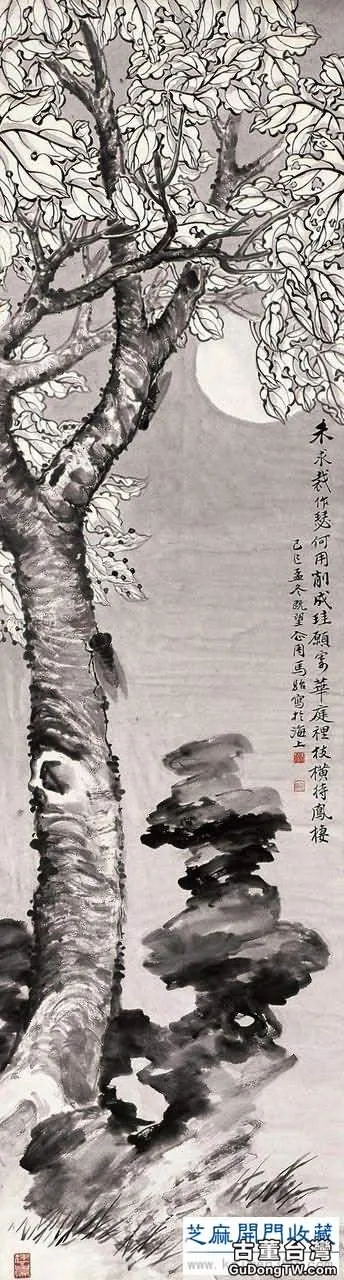 未求裁作瑟何用削成珪願寄華庭裡枝橫待鳳棲
己巳孟冬既望企周馬駘寫於海上
芝麻開門收藏
古董台灣
GuDongTW.com